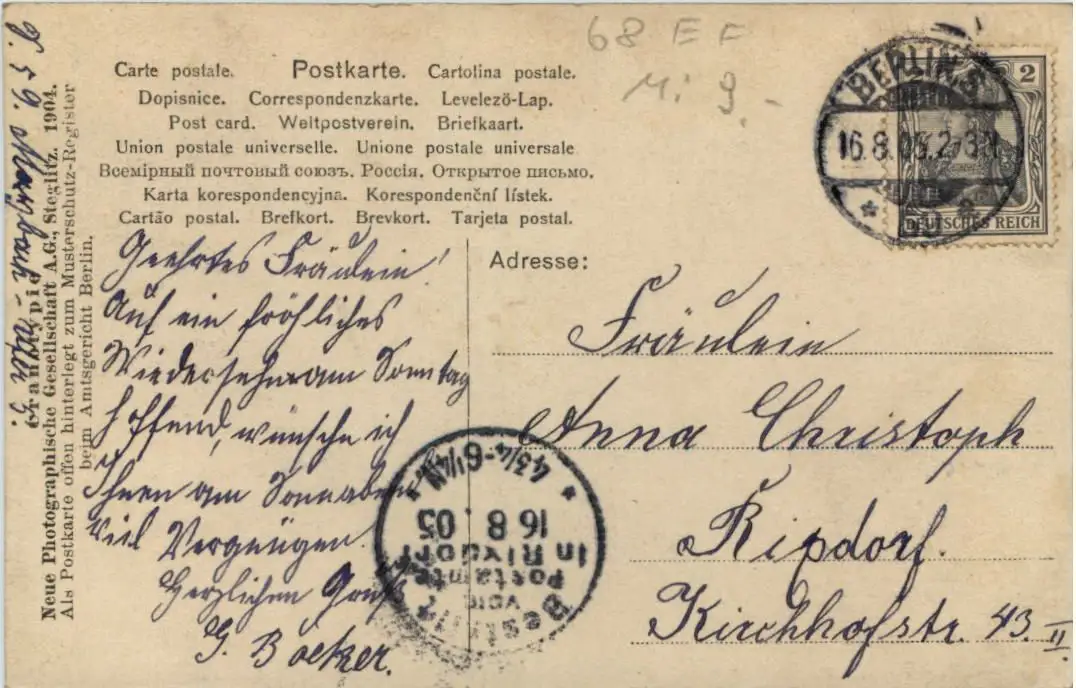 68 EF
Mi 9.
Carte postale. Postkarte. Cartolina postale.
Dopisnice. Correspondenzkarte. Levelezö-Lap.
Post card. Weltpostverein. Briefkaart.
Union postale universelle. Unione postale universale
Всемірный почтовый союзъ. Россія. Открытое письмо.
Karta korespondencyjna. Korespondenční lístek.
Cartão postal. Brefkort. Brevkort. Tarjeta postal.
BERLIN S
16.8.05. 2-3N
2
DEUTSCHES REICH
Geehrtes Fräulein!
Auf ein fröhliches
Wiedersehn am Sonntag
hoffend, wünsche ich
Ihnen am Sonnabend
viel Vergnügen.
Herzlichen Gruß
G. Böttzer.
Adresse:
Fräulein
Anna Christoph
Rixdorf.
Kirchhofstr. 43. II
Bestellt
vom
Postamte
in Rixdorf
16 8. 05
4¾-6¼N
Neue Photographische Gesellschaft A.G., Steglitz. 1904.
Als Postkarte offen hinterlegt zum Musterschutz-Register
beim Amtsgericht Berlin.